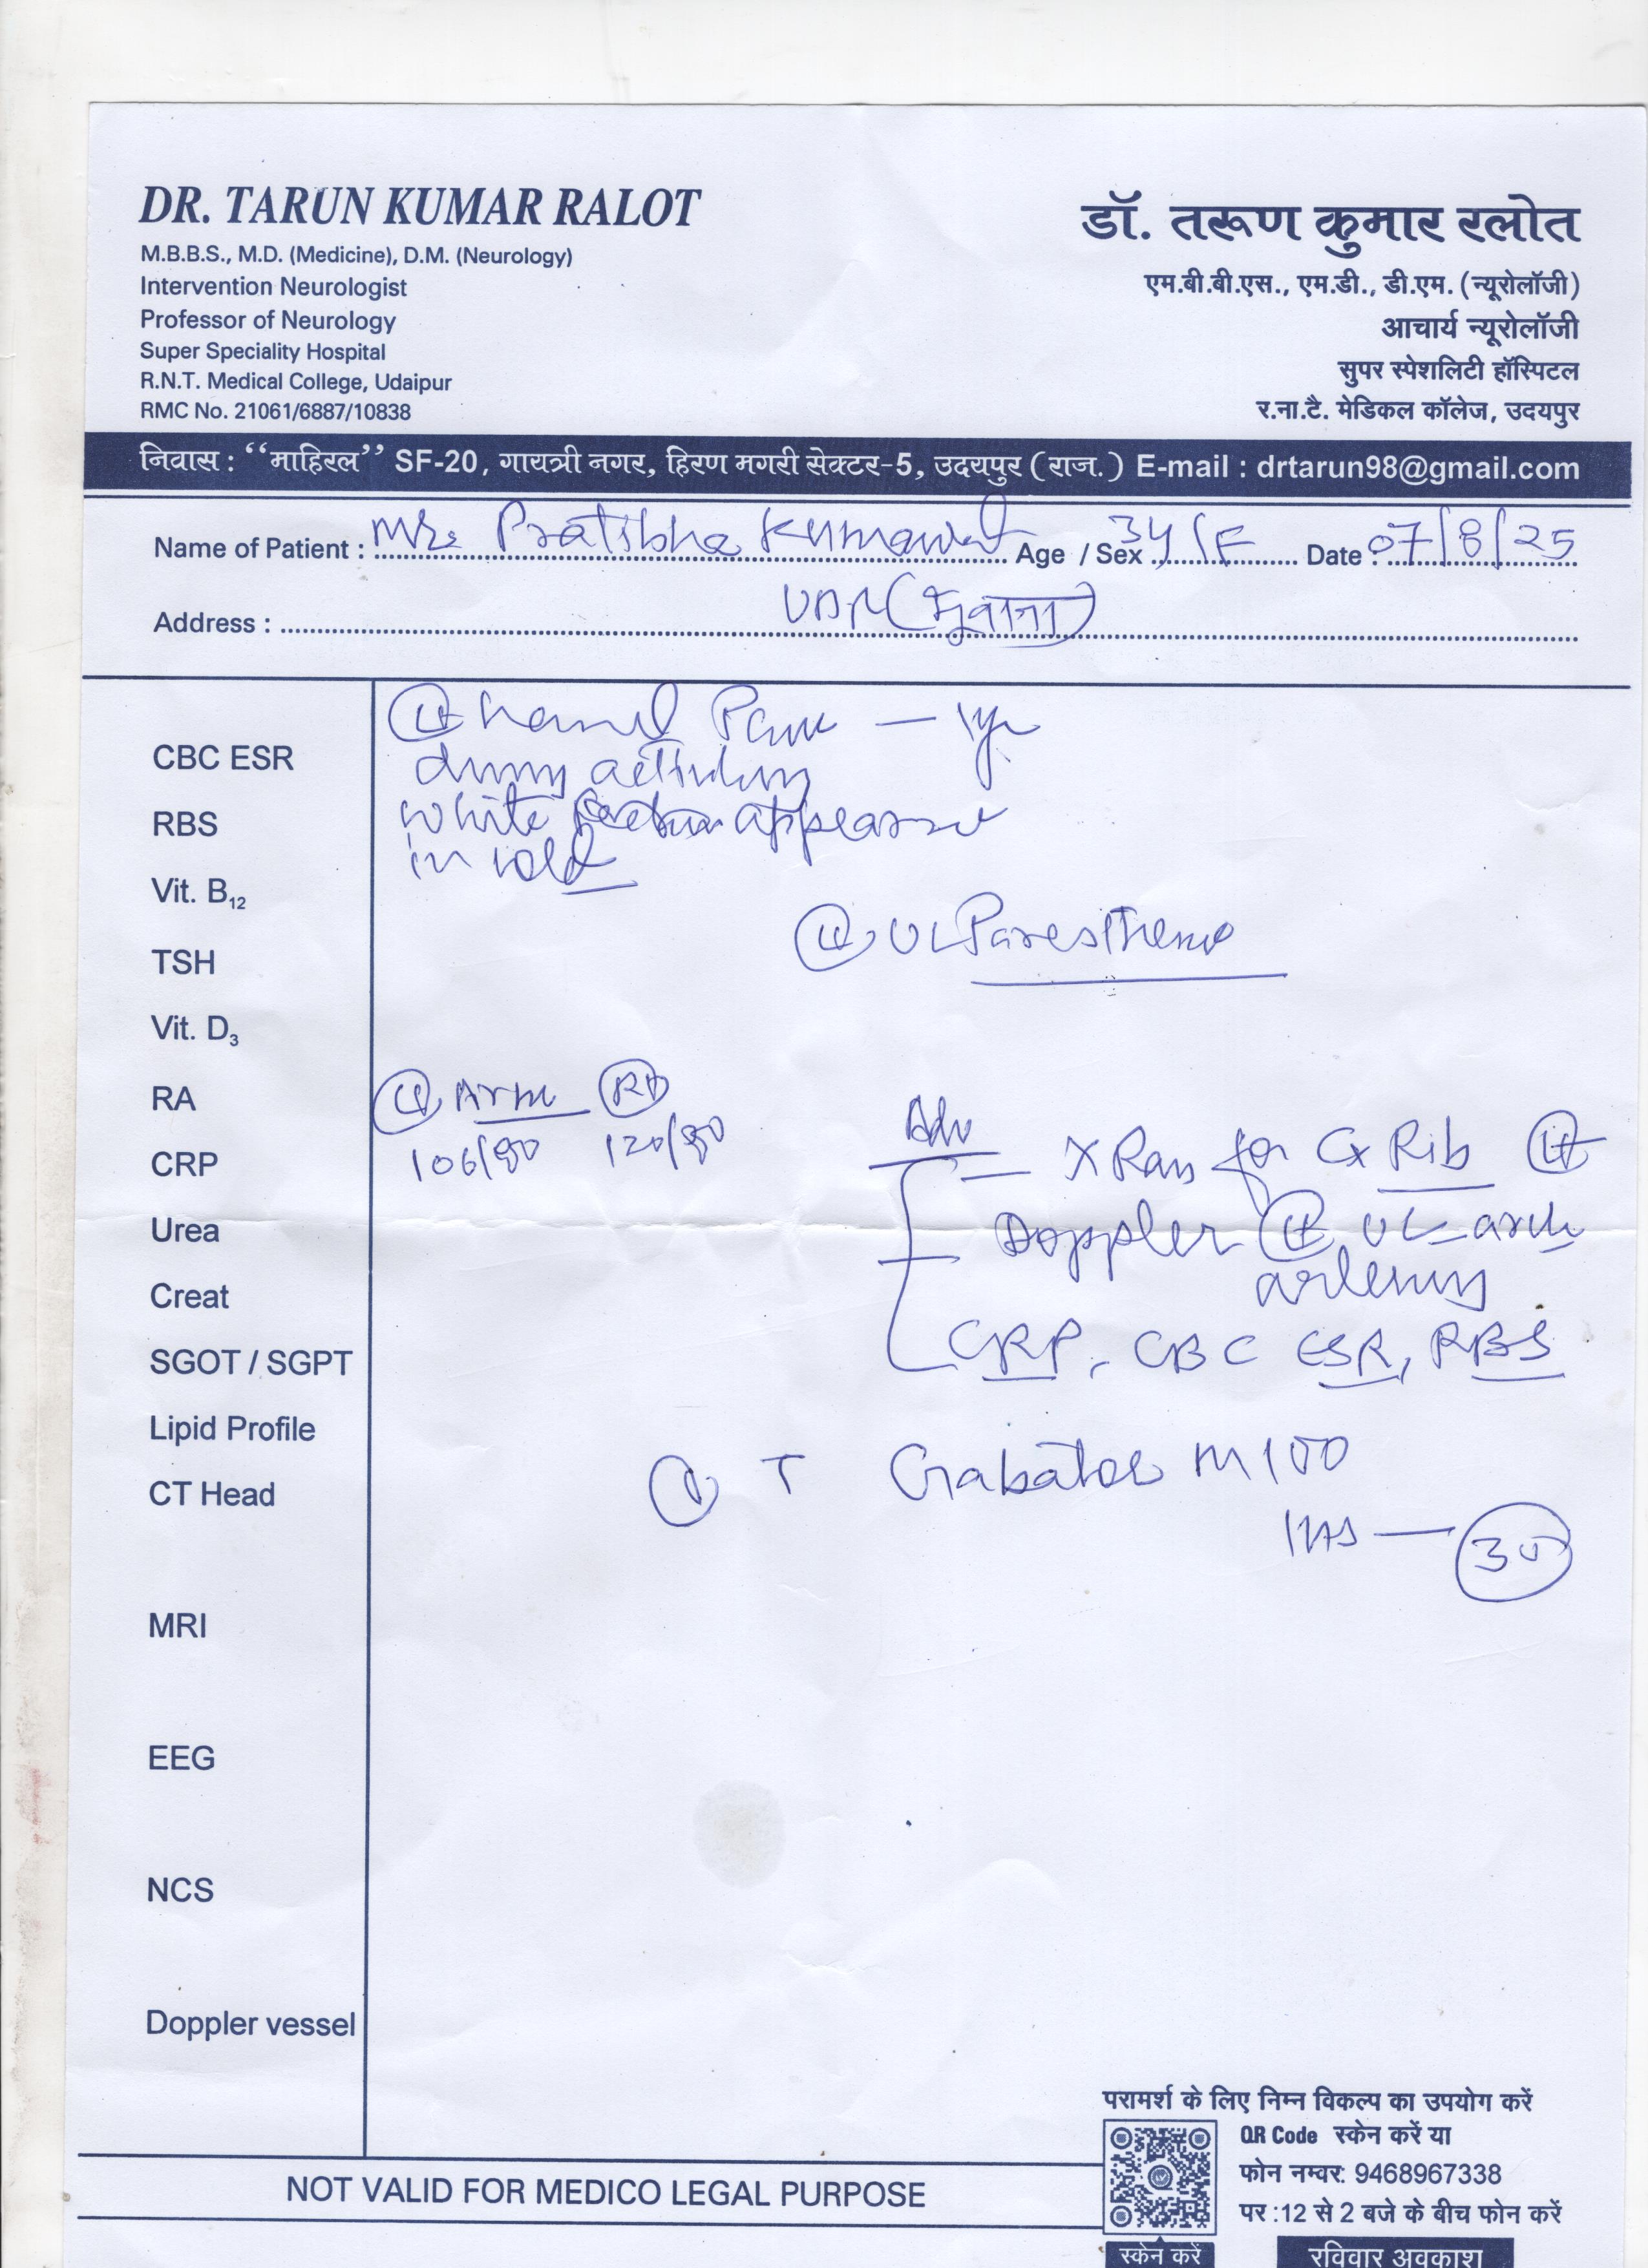 DR. TARUN KUMAR RALOT
M.B.B.S., M.D. (Medicine), D.M. (Neurology)
Intervention Neurologist
Professor of Neurology
Super Speciality Hospital
R.N.T. Medical College, Udaipur
RMC No. 21061/6887/10838
डॉ. तरूण कुमार रलोत
एम.बी.बी.एस., एम.डी., डी.एम. (न्यूरोलॉजी)
आचार्य न्यूरोलॉजी
सुपर स्पेशलिटी हॉस्पिटल
र.ना.टै. मेडिकल कॉलेज, उदयपुर
निवास : ‘‘माहिरल’’ SF-20, गायत्री नगर, हिरण मगरी सेक्टर-5, उदयपुर (राज.) E-mail : drtarun98@gmail.com
Name of Patient : Mrs Pratibha Kumawat Age / Sex 34/F Date : 07/8/25
Address : UDR (भुवाना)
Lt hand Pain - 1yr
CBC ESR
during
RBS
white appearance
in cold
Vit. B12
Lt UL Paresthesia
TSH
Vit. D3
RA
Lt Arm Rt
106/80 120/80
Adv
CRP
X Ray for Cx Rib Lt
Urea
Doppler Lt UL arch
Creat
CRP, CBC ESR, RBS
SGOT / SGPT
Lipid Profile
T Gabator M 100
CT Head
1 HS — 30
MRI
EEG
NCS
Doppler vessel
NOT VALID FOR MEDICO LEGAL PURPOSE
परामर्श के लिए निम्न विकल्प का उपयोग करें
QR Code स्केन करें या
फोन नम्वर: 9468967338
पर :12 से 2 बजे के बीच फोन करें
स्केन करें
रविवार अवकाश